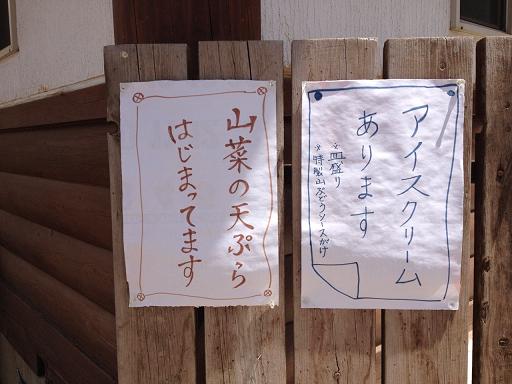 山菜の天ぷら
はじまってます
アイスクリーム
あります
※皿盛り
※特製山ぶどうソースがけ